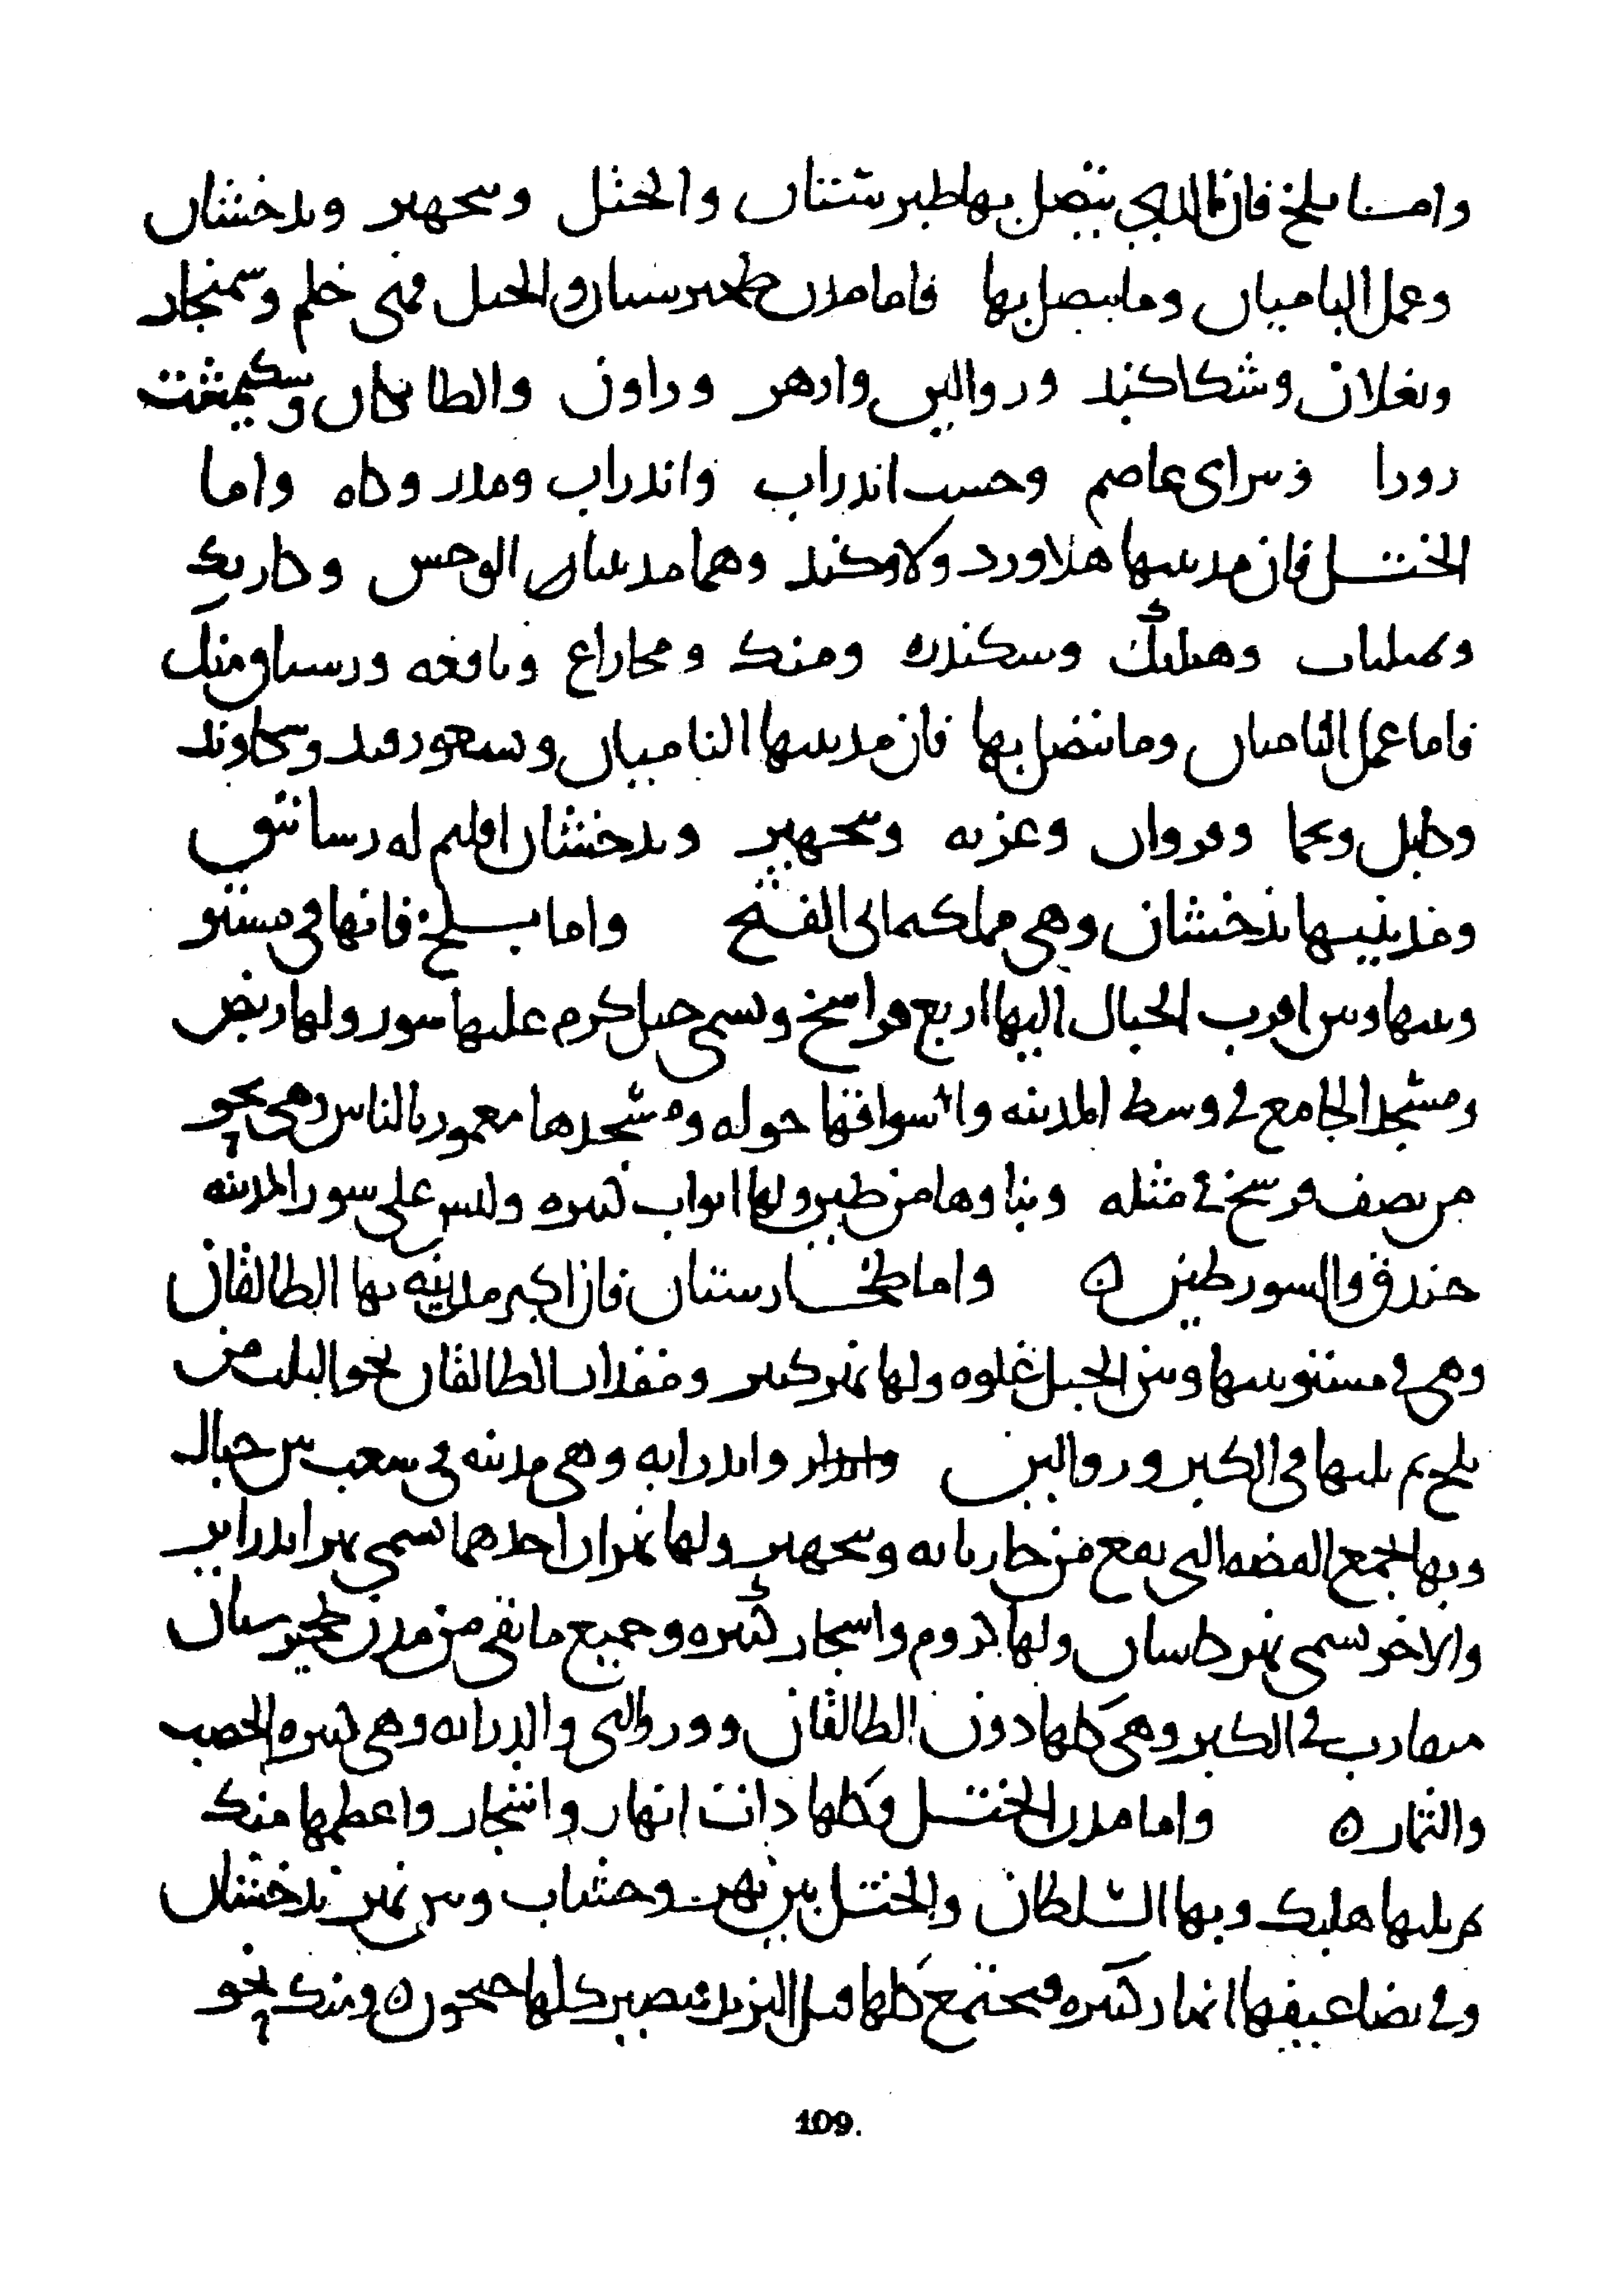 وامــا بلخ فان الذي يتصل بها طبرستان والختل وبنجهير وبدخشان
وعمل الباميان وما يتصل بها فاما مدن طخيرستان والختل فهي خلم وسمنجان
وبغلان وشكاكند وروالين وارهن وراون والطايكان وسكيمشت
روبا وسراي عاصم وخست اندراب واندراب ومدر وكاه واما
الختــل فان مدينتها هلاورد ولاوكند وهما مدينتان الوخش وكاربنك
وتمليات وهلبك وسكندره ومنك وفاراغ وبافغه ورستاق بنك
فاما عمل الباميان وما يتصل بها فان مدينتها الباميان وبسغورفند وسكاوند
وكابل ولجرا وفروان وغزنه وبنجهير وبدخشان اقليم له رساتيق
ومدينتها بدخشان وهي مملكة ابي الفتح واما بــلخ فانها في مستو
وبينها وبين اقرب الجبال اليها اربع فراسخ ويسمى جبل كرم عليها سور ولها ربض
ومسجد الجامع في وسط المدينه واسواقها حوله ومسجدها معمور بالناس وهي نحو
من نصف فرسخ في مثله وبناوها من طين ولها ابواب كثيره وليس على سور المدينه
خندق والسور طين ه واما طخــارستان فان اكبر مدينه بها الطالقان
وهي في مستو بينها وبين الجبل غلوه ولها نهر كبير ومقدار الطالقان نحو الثلث من
بلخ ثم يليها في الكبر وروالين واندرابه وهي مدينه في شعب بين جبال
وبها تجمع الفضه التي تقع من جاربايه وبنجهير ولها نهران احدهما يسمى نهر اندراب
والاخر يسمى نهر كاسان ولها كروم واشجار كثيره وجميع ما بقي من مدن طخيرستان
متقارب في الكبر وهي كلها دون الطالقان وورواليز واندرابه وهي كثيره الخصب
والثمار ه واما مدن الختــل فكلها ذات انهار واشجار واعظمها منك
ثم يليها هلبك وبها السلطان والختل بين نهر وخشاب وبين نهر بدخشان
وفي تضاعيفها انهار كثيره فتجتمع كلها قبل الترمذ فتصير كلها جيحون ه ومنك نحو
109.